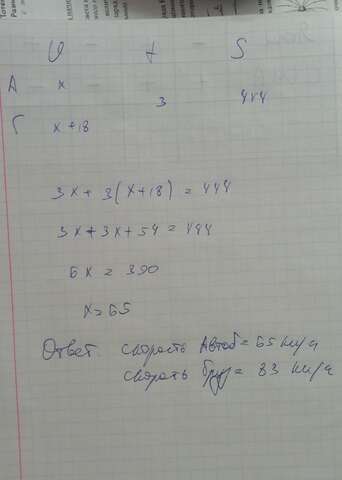 υ t S
А x
3 444
Г x+18
3x + 3(x+18) = 444
3x+3x+54=444
6x = 390
x=65
Ответ. скорость Автоб = 65 км/ч
скорость Груз = 83 км/ч